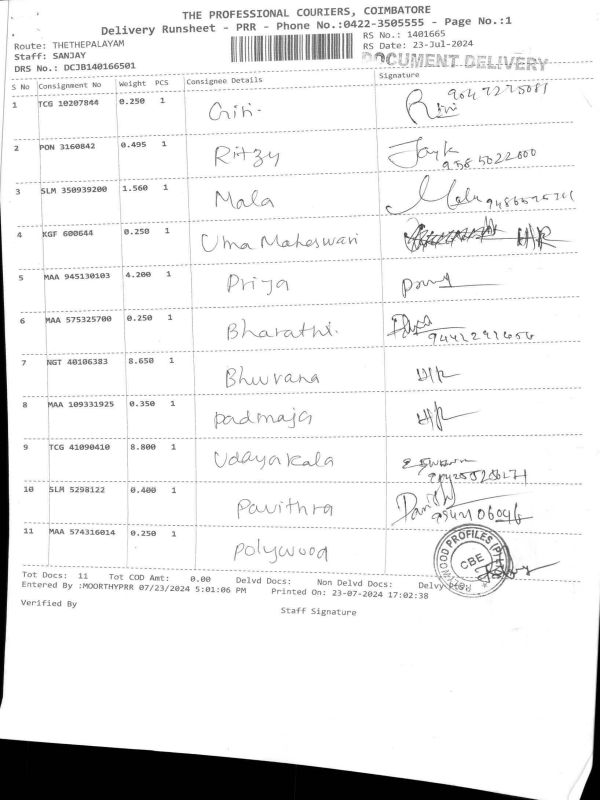 THE PROFESSIONAL COURIERS, COIMBATORE
Delivery Runsheet - PRR - Phone No.:0422-3505555 - Page No.:1
Route: THETHEPALAYAM
RS No.: 1401665
Staff: SANJAY
RS Date: 23-Jul-2024
DRS No.: DCJB140166501
DOCUMENT DELIVERY
S No Consignment No Weight PCS Consignee Details Signature
1 TCG 10207844 0.250 1 Giri.
2 PON 3160842 0.495 1 Ritzy
3 SLM 350939200 1.560 1 Mala Mala
4 KGF 600644 0.250 1 Uma Maheswari H/R
5 MAA 945130103 4.200 1 Priya
6 MAA 575325700 0.250 1 Bharathi.
7 NGT 40106383 8.650 1 Bhuvana H/R
8 MAA 109331925 0.350 1 padmaja H/R
9 TCG 41090410 8.800 1 Udayakala
10 SLM 5298122 0.400 1 Pavithra
11 MAA 574316014 0.250 1 Polywood
CBE
Tot Docs: 11 Tot COD Amt: 0.00 Delvd Docs: Non Delvd Docs:
Entered By :MOORTHYPRR 07/23/2024 5:01:06 PM Printed On: 23-07-2024 17:02:38
Verified By
Staff Signature